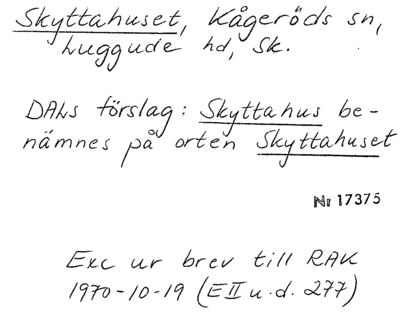 Skyttahuset, Kågeröds sn,
Luggude hd, Sk.
DALs förslag: Skyttahus be-
nämnes på orten Skyttahuset
Nr 17375
Exc ur brev till RAK
1970-10-19 (EII u.d. 277)